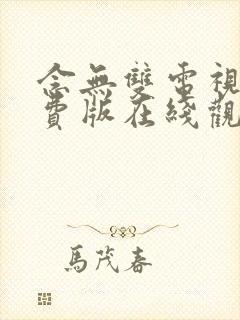 念無雙電視
費版在綫觀
馬茂春